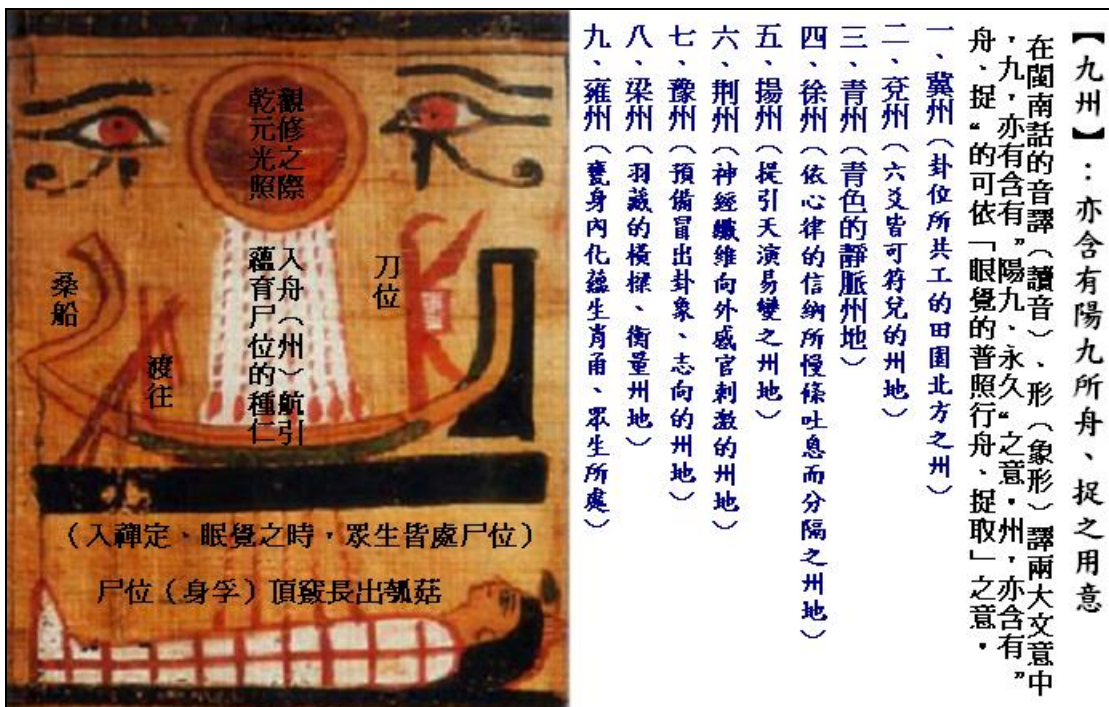 【九州】：亦含有陽九所舟、捉之用意
在閩南話的音譯（讀音）、形（象形）譯兩大文意中
，九，亦有含有”陽九、永久“之意．州，亦含有”
舟、捉“的可依「眼覺的普照行舟、捉取」之意．
一、冀州（卦位所共工的田園北方之州）
二、兗州（六爻皆可符兒的州地）
三、青州（青色的靜脈州地）
四、徐州（依心律的信納所慢條吐息而分隔之州地）
五、揚州（提引天演易變之州地）
六、荆州（神經纖維向外感官刺激的州地）
七、豫州（預備冒出卦象、志向的州地）
八、梁州（羽藏的橫樑、衡量州地）
九、雍州（甕身內化蘊生肖甬、眾生所處）
觀修之際
乾元光照
刀位
入舟（州）航引
蘊育尸位的種仁
桑船
渡往
（入禪定、眠覺之時，眾生皆處尸位）
尸位（身孚）頂竅長出瓠菇